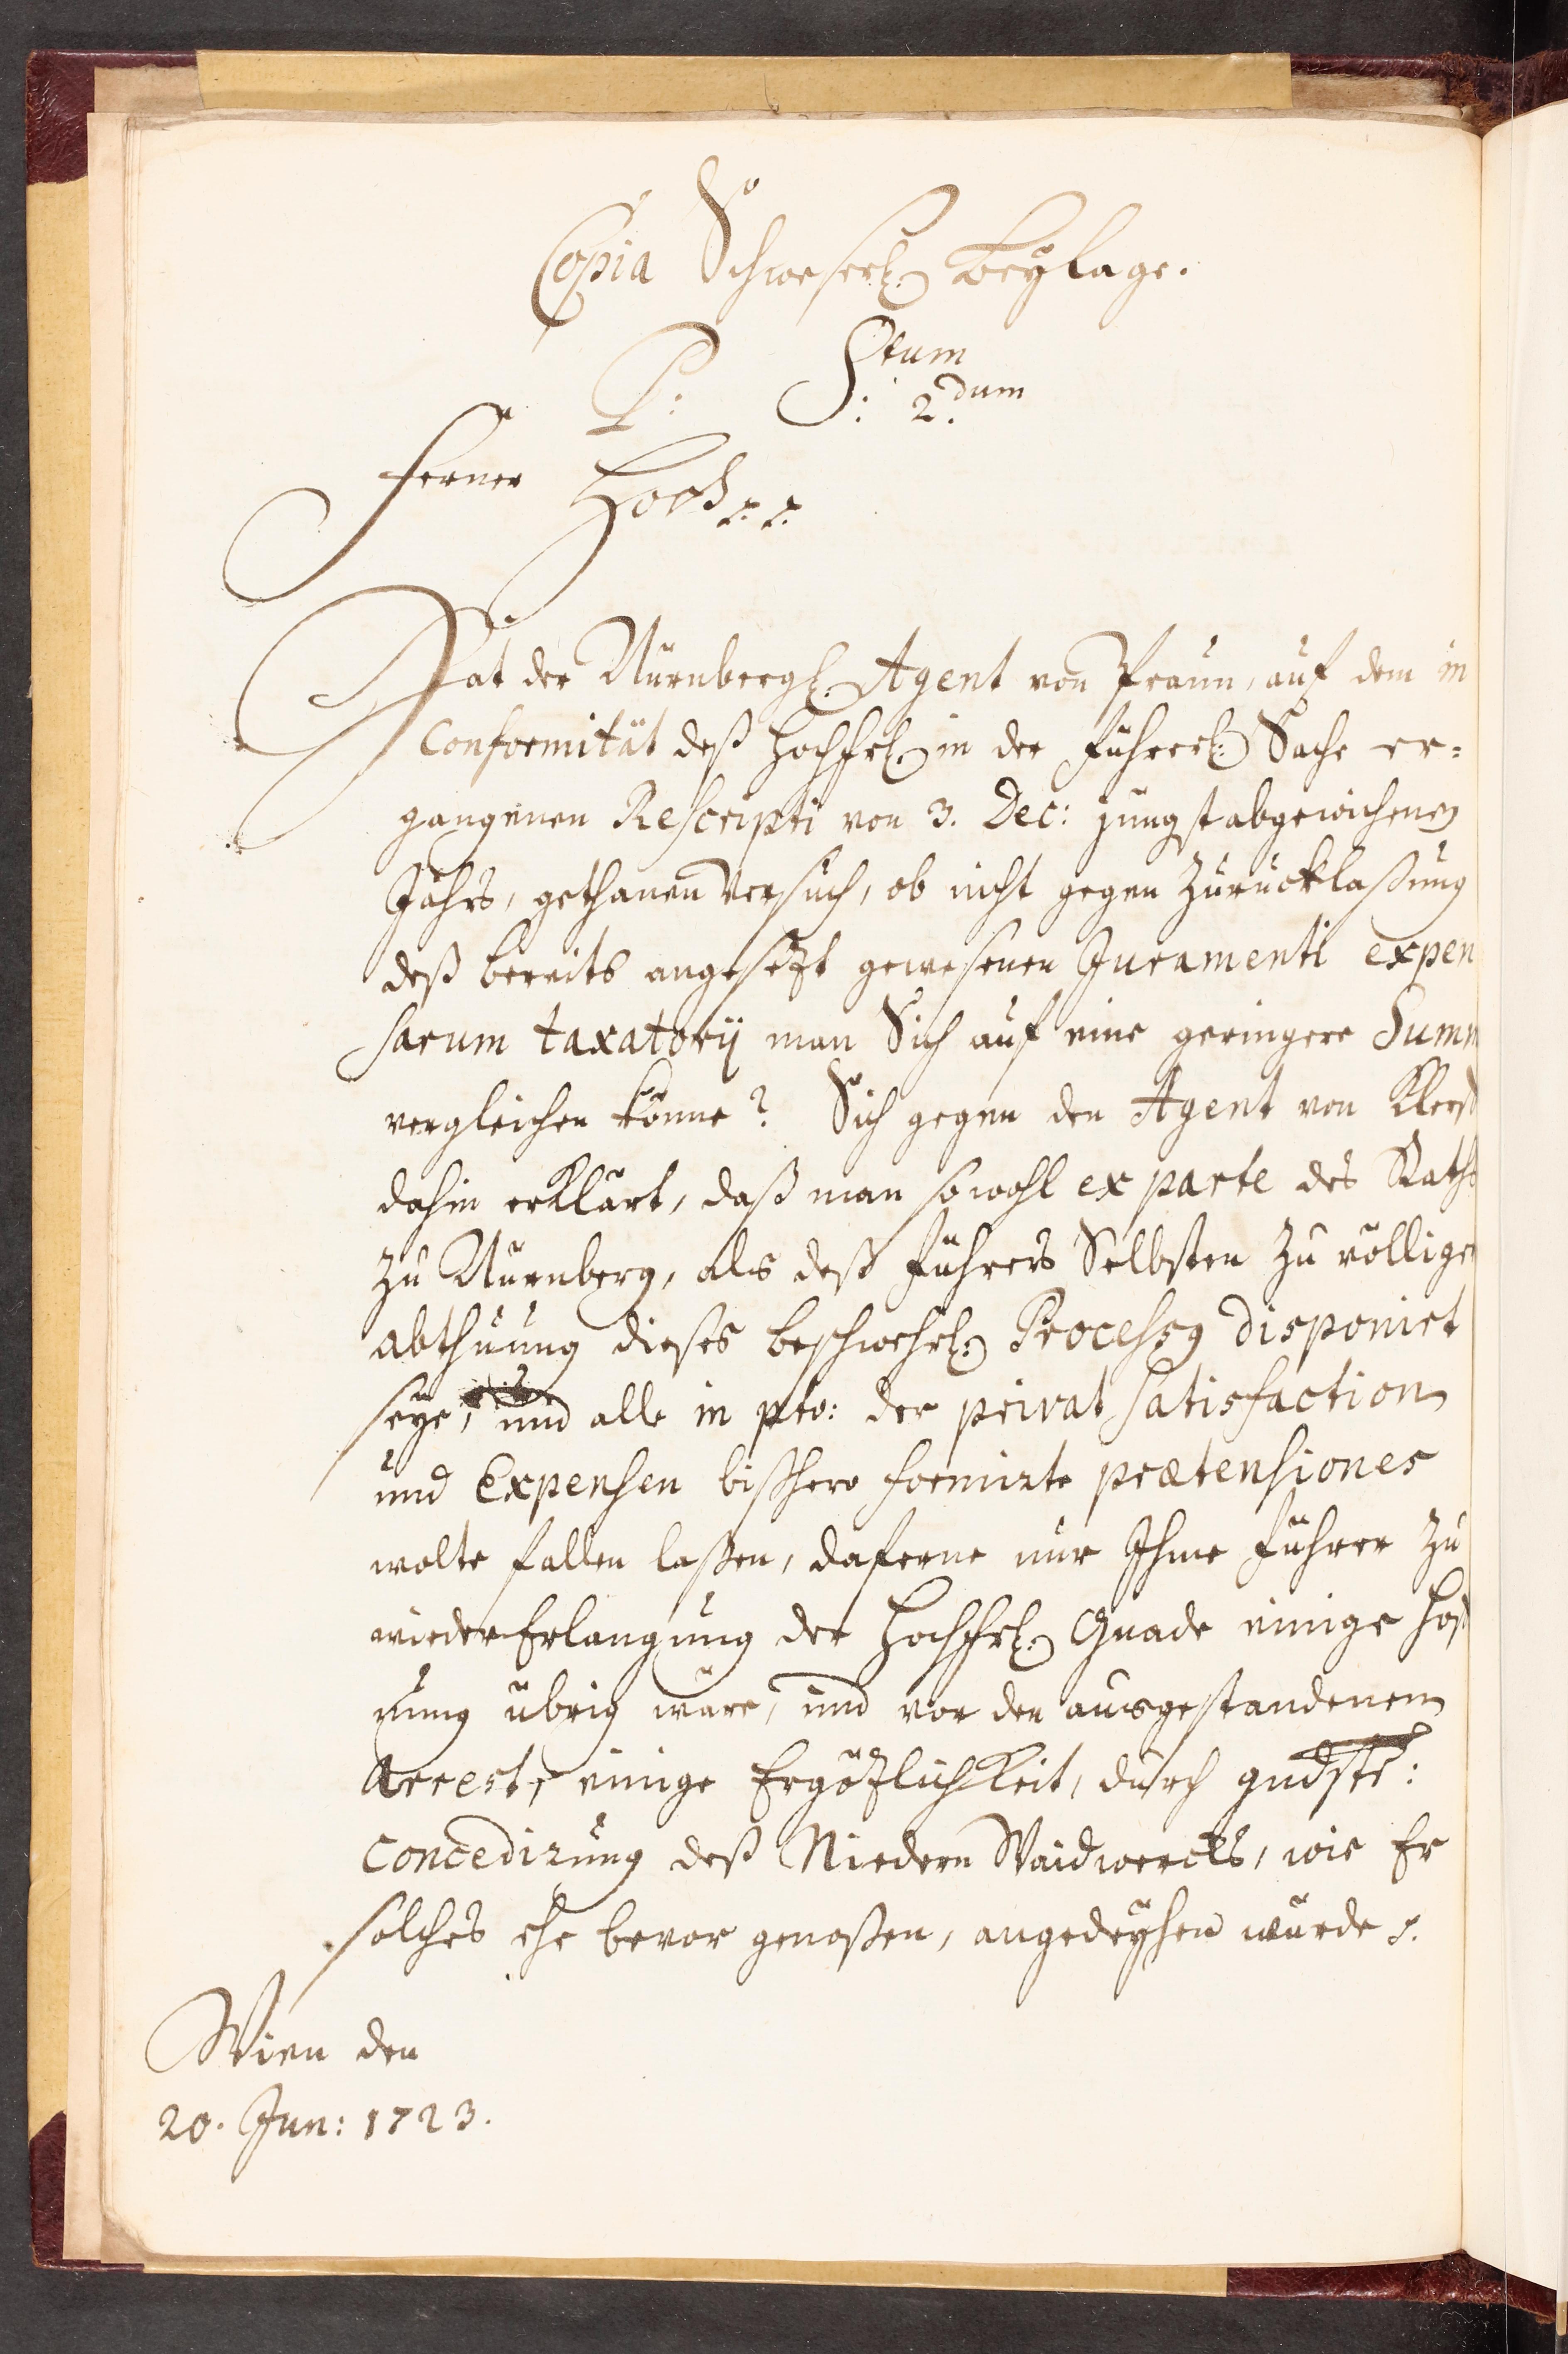 Copia Schweserl. Beylage.
P: Stum
S: 2.dum
Ferner Hoch p. p.
Hat der Nürnbergl. Agent von Praun, auf dem in
Conformität deß Hochfrl. in der Führerl: Sache er=
gangenen Rescripti von 3. Dec: jüngst abgewichenen
Jahrs, gethanen Versuch, ob nicht gegen Zurücklaßung
deß bereits angesezt gewesenen Juramenti expen
sarum taxatorij man Sich auf eine geringere Summ
vergleichen könne? Sich gegen den Agent von
dahin erklärt, daß man sowohl ex parte des Raths
zu Nürnberg, als deß Führers Selbsten zu völliger
abthuung dießes beschwehrl: Processus disponirt
seye, und alle in pto: der privat satisfaction
und Expensen bißhero formirte prætensiones
wolte fallen laßen, daferne nur Ihme Führer zu
wieder Erlangung der Hochfrl. Gnade einige Hof
nung übrig wäre, und vor den ausgestandenen
Arrest, einige Ergözlichkeit, durch gndste:
concedirung deß Niedern Waidwercks, wie Er
solches ehe bevor genoßen, angedeyhen würde p.
Wien den
20. Jun: 1723.